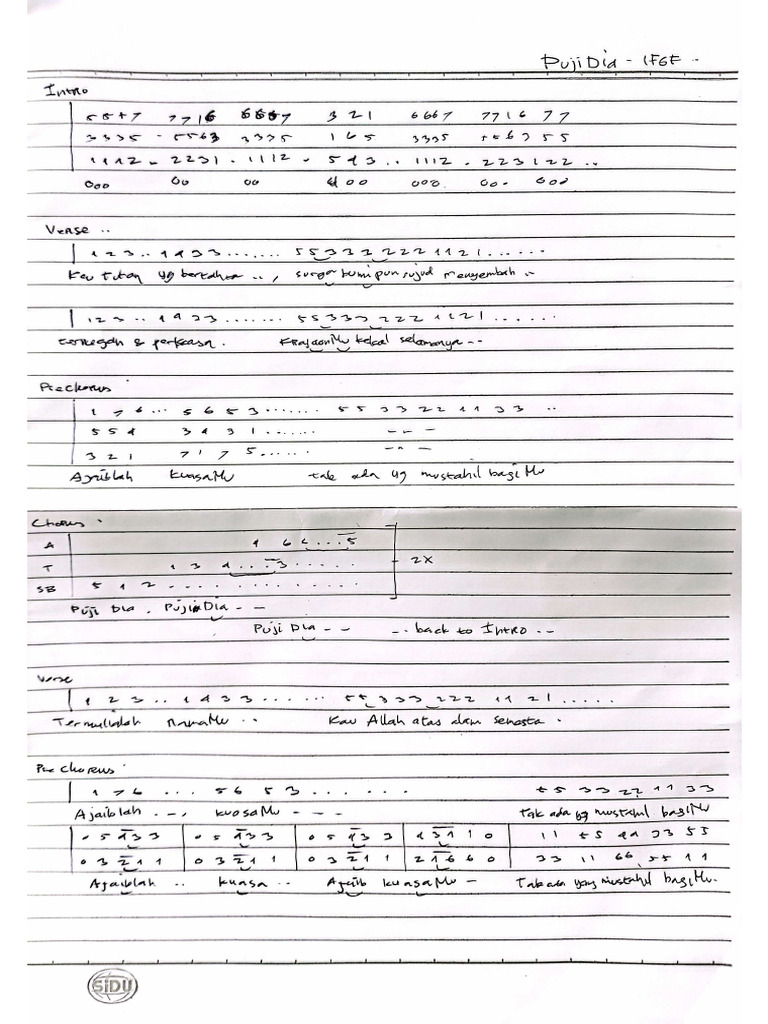 Puji Dia - IFGF -
Intro
5557 7716 6667 321 6667 7716 77
3335 - 5563 3335 165 3335 5563 55
1112 - 2231 - 1112 - 543 .. 1112 - 223122 ..
000 00 00 000 000. 00. 000
Verse ..
123 .. 1433 ....... 55333 2222 1121 ......
Kau Tuhan yg bertahta .., surga bumi pun sujud menyembah ..
123 .. 1433 ....... 55333 222 1121 ......
& perkasa. KrajaanMu kekal selamanya --
Prechorus
176 ... 5653 ....... 5533221133 ..
554 3431 ...... -- -
321 7175 ...... -- -
Ajaiblah KuasaMu tak ada yg mustahil bagiMu
Chorus
A 4 6 6...5
T 1 3 4...3 ..... 2X
SB 5 1 2 ............
Puji Dia, Puji Dia --
Puji Dia -- -- back to Intro --
Verse
123 .. 1433 ...... 55333 222 1121 .....
Termulialah NamaMu .. Kau Allah atas alam semesta.
Pre Chorus
176 ... 5653 ...... 5533221133
Ajaiblah - -, kuasaMu - - - tak ada yg mustahil bagiMu
05433 05433 05433 43110 1155443355
03211 03211 03211 21660 3311665511
Ajaiblah .. kuasa .. Ajaib kuasaMu - Tak ada yang mustahil bagiMu.
SIDU